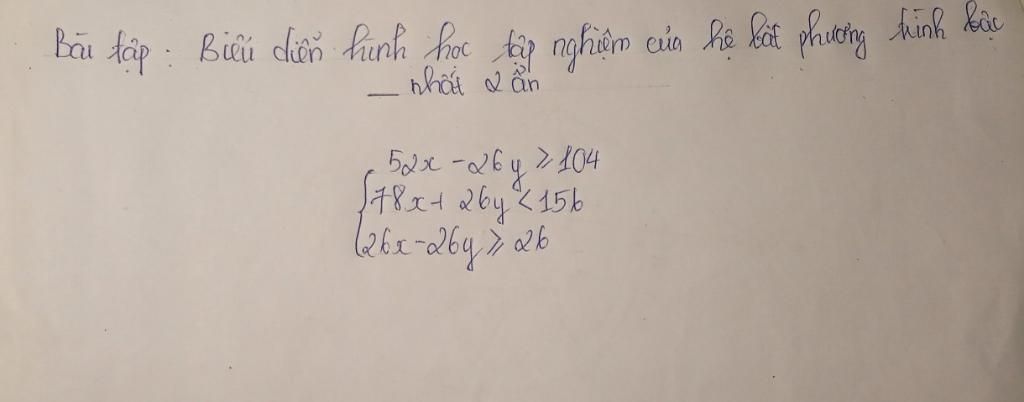 Bài tập : Biểu diễn hình học tập nghiệm của hệ bất phương trình bậc
nhất 2 ẩn
52x - 26y ≥ 104
78x + 26y < 156
26x - 26y ≥ 26